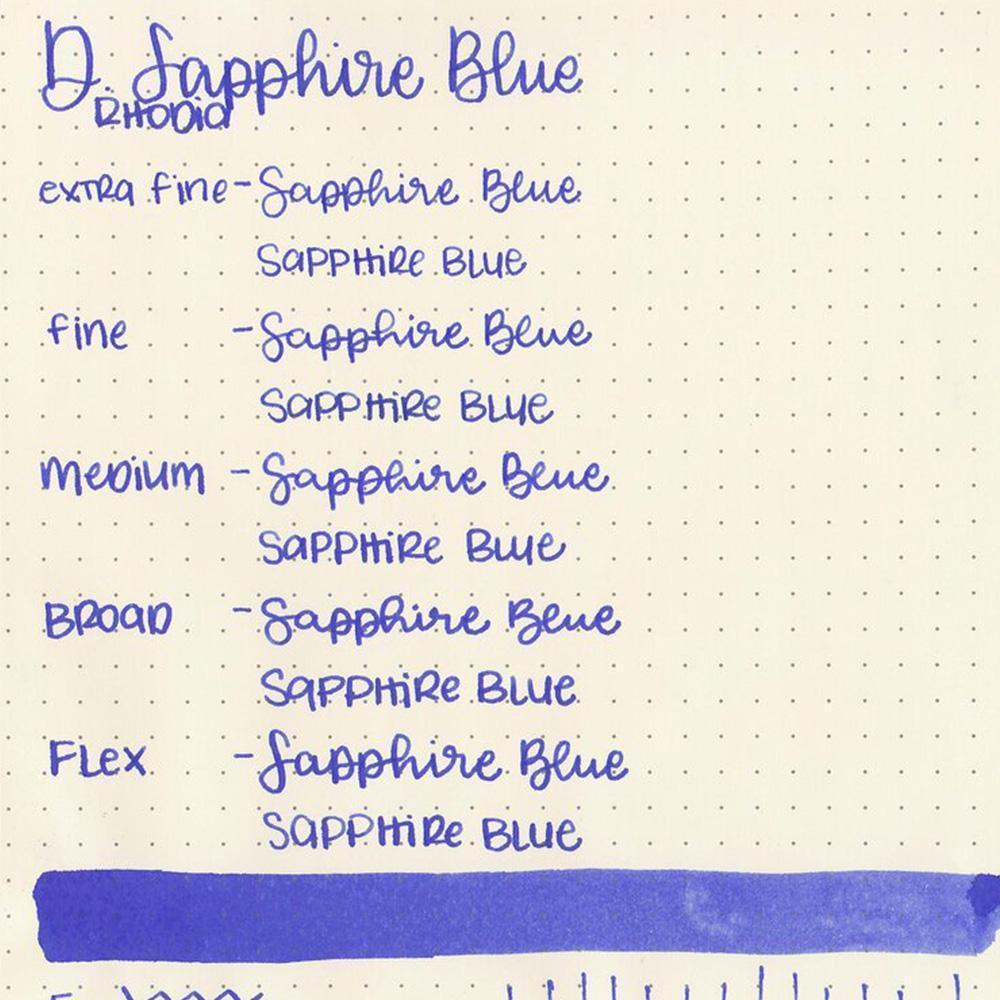 D. Sapphire Blue
RHODia
exTRa fine - Sapphire Blue
SaPPHiRe BLUe
fine - Sapphire Blue
SaPPHiRe BLUe
MeDiuM - Sapphire Blue
SaPPHiRe BLUe
BROaD - Sapphire Blue
SaPPHiRe BLUe
FLex - Sapphire Blue
SaPPHiRe BLUe